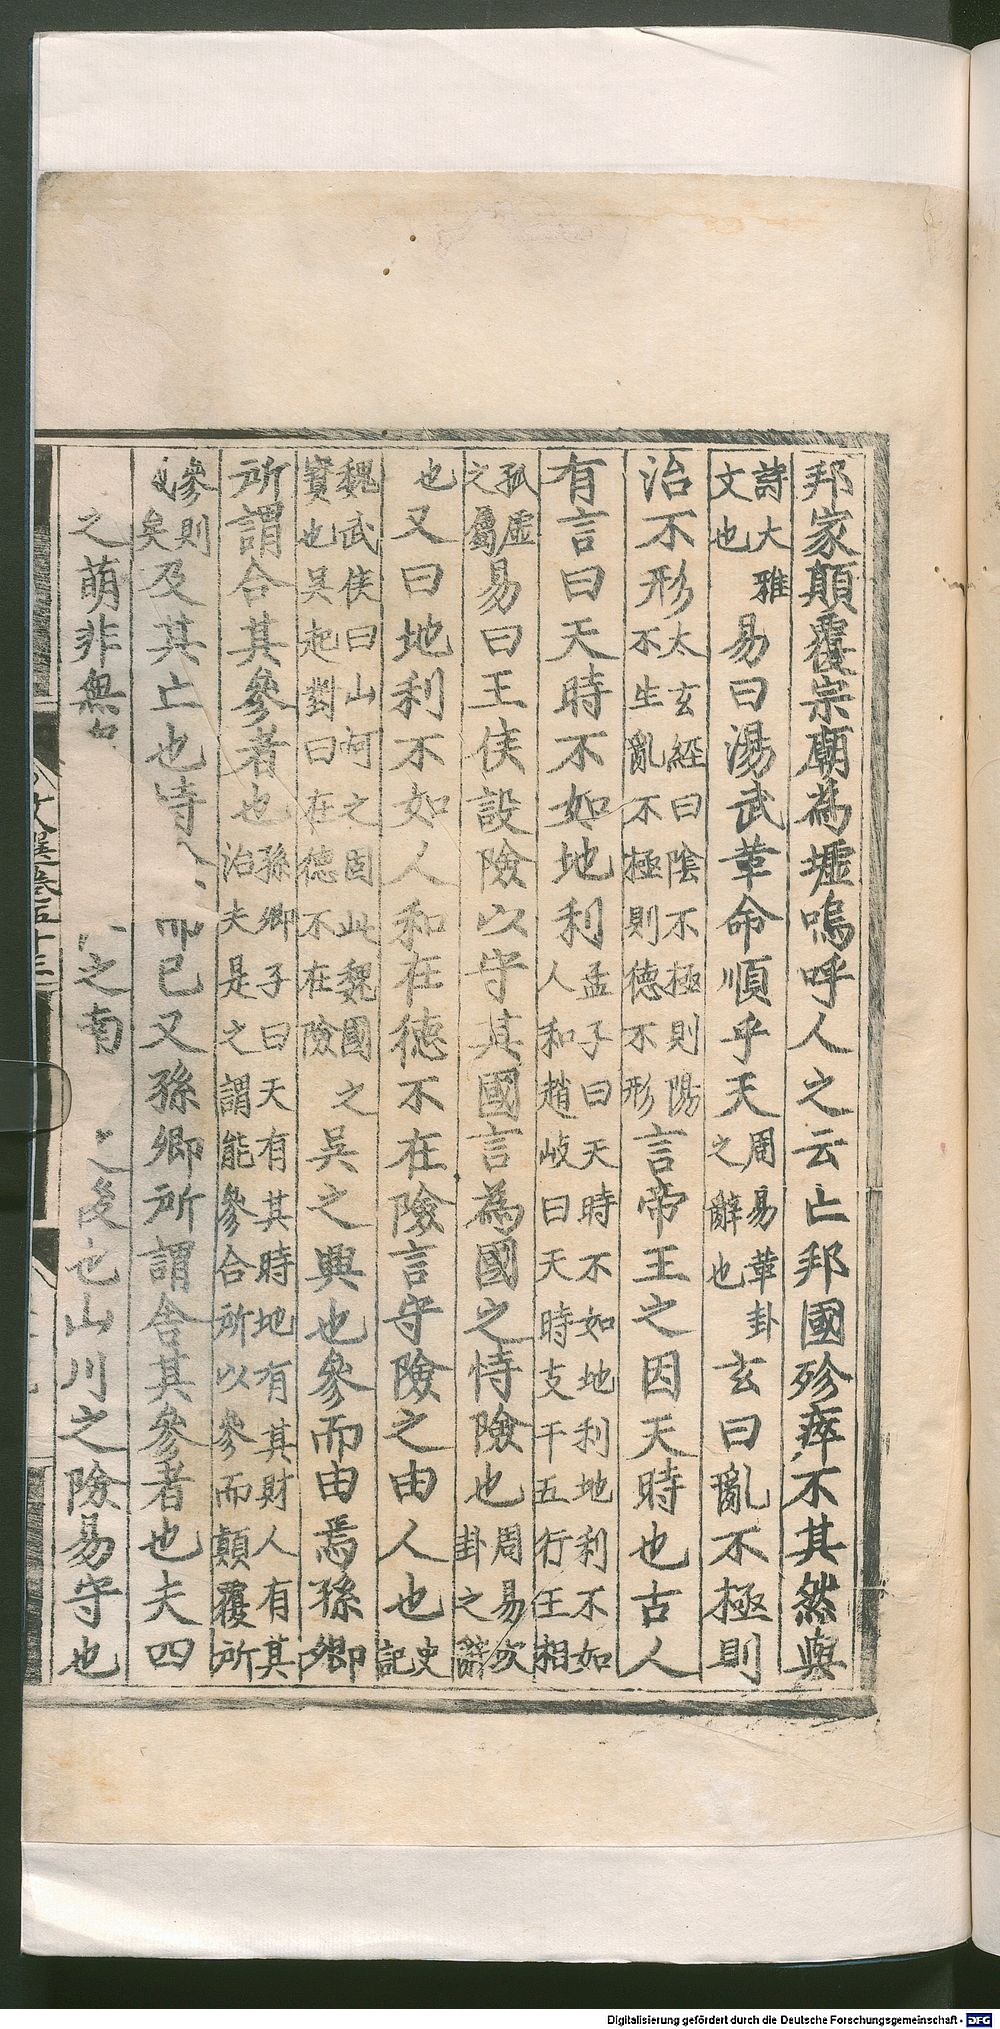 邦家顛覆宗廟為墟嗚呼人之云亡邦國殄瘁不其然與
詩大雅文也易曰湯武革命順乎天周易革卦之辭也玄曰亂不極則
治不形太玄經曰陰不極則陽不生亂不極則德不形言帝王之因天時也古人
有言曰天時不如地利孟子曰天時不如地利地利不如人和趙岐曰天時支干五行王相
孤虛之屬易曰王侯設險以守其國言為國之恃險也周易坎卦之辭
也又曰地利不如人和在德不在險言守險之由人也史記
魏武侯曰山河之固此魏國之寶也吳起對曰在德不在險吳之興也參而由焉孫卿
所謂合其參者也孫卿子曰天有其時地有其財人有其治夫是之謂能參合所以參而顛覆所
參則矣及其亡也恃而已又孫卿所謂舍其參者也夫四
之萌非無之南之後也山川之險易守也
文選卷五十三
Digitalisierung gefördert durch die Deutsche Forschungsgemeinschaft - DFG